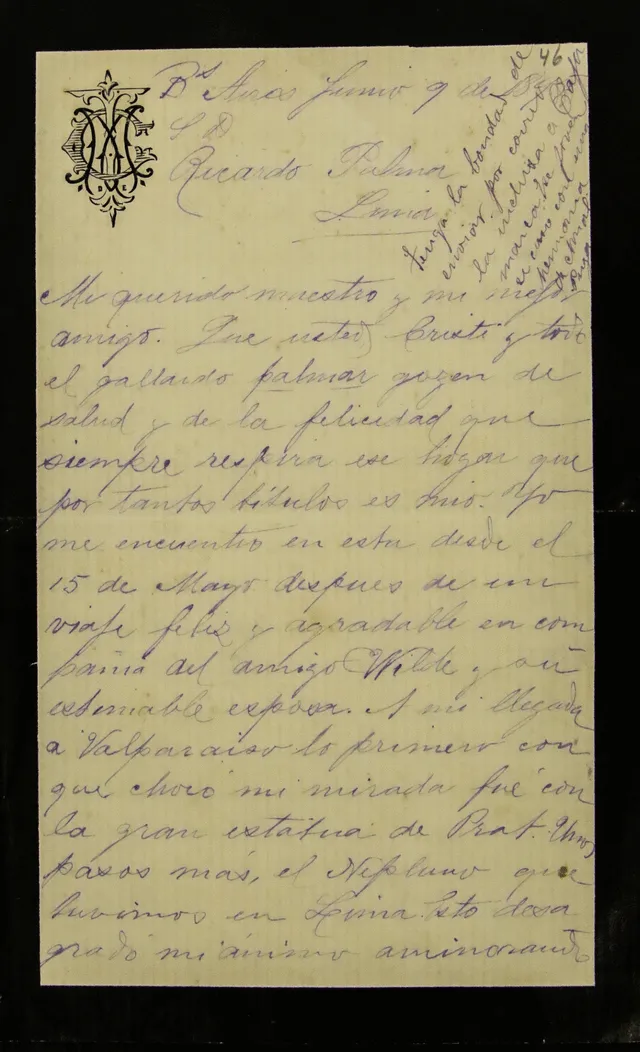 46
Bs Aires Junio 9 de 18
S D
Ricardo Palma
Lima
Tenga la bondad de
enviar por correo
la inclusa a
marca. Se
se casó con una
Mi querido maestro y mi mejor
amigo. Que usted, Cristi y todo
el gallardo palmar gozen de
salud y de la felicidad que
siempre respira ese hogar que
por tantos títulos es mio. Yo
me encuentro en esta desde el
15 de Mayo despues de un
viaje feliz y agradable en com
pañia del amigo Wilde y su
estimable esposa. A mi llegada
a Valparaiso lo primero con
que chocó mi mirada fué con
la gran estátua de Prat. Unos
pasos más, el Neptuno que
tuvimos en Lima. Esto desa
gradó mi ánimo aminorando